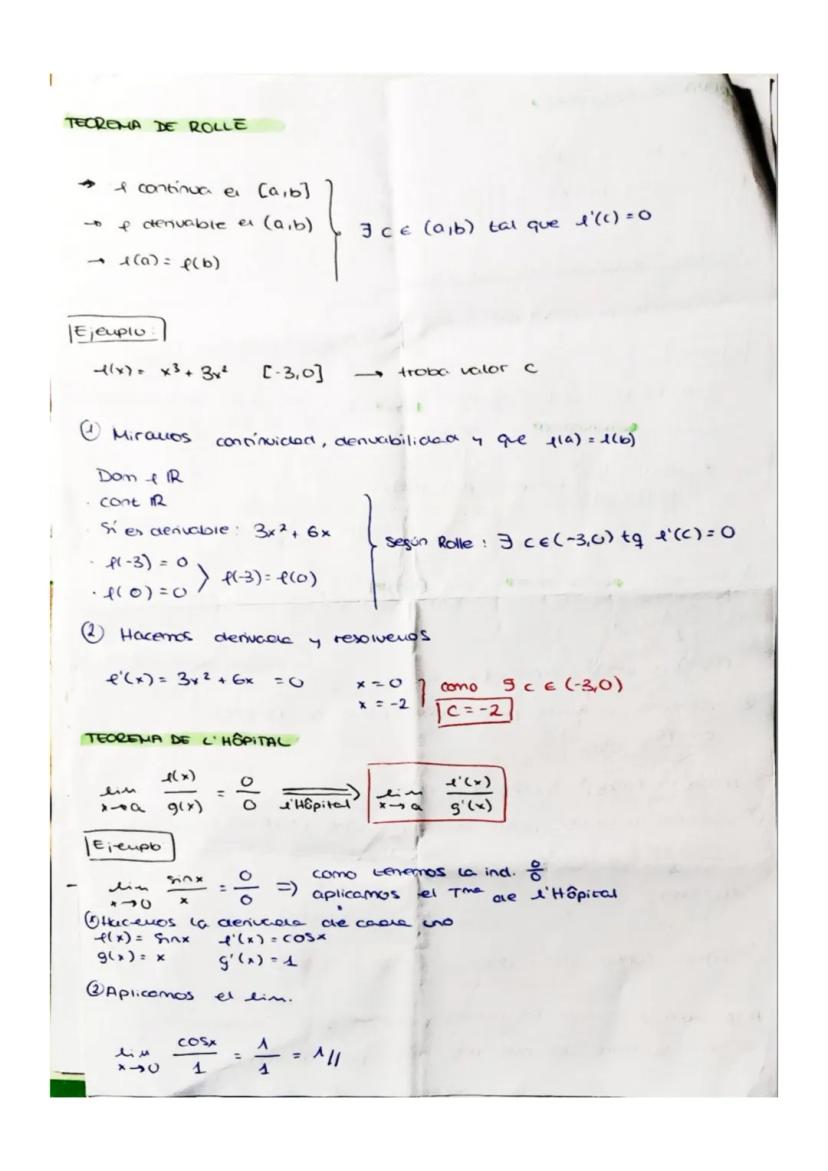 TEOREMA DE ROLLE
→ f continua en [a,b]
→ f derivable en (a,b)
→ f(a) = f(b)
∃ c ∈ (a,b) tal que f'(c) = 0
Ejemplo:
f(x) = x³ + 3x² [-3,0] → troba valor c
① Miramos continuidad, derivabilidad y que f(a) = f(b)
Dom f ℝ
· cont ℝ
· Sí es derivable: 3x² + 6x
· f(-3) = 0
· f(0) = 0
f(-3) = f(0)
Según Rolle: ∃ c ∈ (-3,0) tq f'(c) = 0
② Hacemos derivada y resolvemos
f'(x) = 3x² + 6x = 0
x = 0
x = -2
como ∃ c ∈ (-3,0)
c = -2
TEOREMA DE L'HÔPITAL
lim x→a f(x)/g(x) = 0/0 ⟹ l'Hôpital lim x→a f'(x)/g'(x)
Ejemplo
- lim x→0 sinx/x = 0/0 ⇒ como tenemos la ind. 0/0
aplicamos el Tma de l'Hôpital
① Hacemos la derivada de cada uno
f(x) = sinx f'(x) = cosx
g(x) = x g'(x) = 1
② Aplicamos el lim.
lim x→0 cosx/1 = 1/1 = 1//